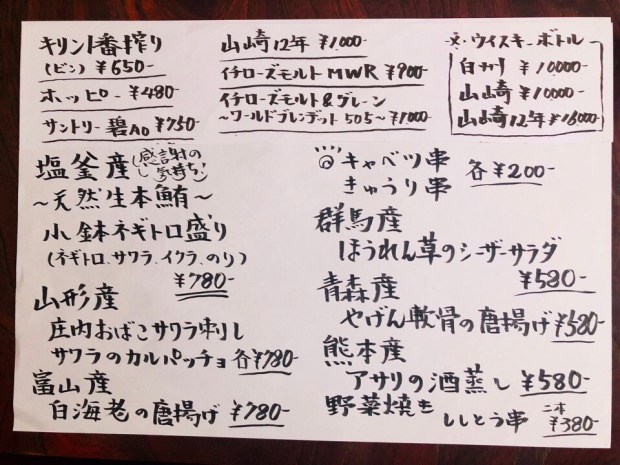 キリン1番搾り
(ビン) ¥650-
ホッピー ¥480
サントリー 碧Ao ¥750-
山崎12年 ¥1000-
イチローズモルト MWR ¥900-
イチローズモルト&グレーン
~ワールドブレンデット 505~ ¥1000-
ウイスキーボトル
白州 ¥10000-
山崎 ¥10000-
山崎12年 ¥18000-
塩釜産
(感謝の気持ち!)
~天然生本鮪~
小鉢ネギトロ盛り
(ネギトロ、サワラ、イクラ、のり)
¥780-
山形産
庄内おばこサワラ刺し
サワラのカルパッチョ 各¥780-
富山産
白海老の唐揚げ ¥780-
キャベツ串
きゅうり串
各¥200-
群馬産
ほうれん草のシーザーサラダ
¥580-
青森産
やげん軟骨の唐揚げ ¥580-
熊本産
アサリの酒蒸し ¥580-
野菜焼き
ししとう串 二本 ¥380-